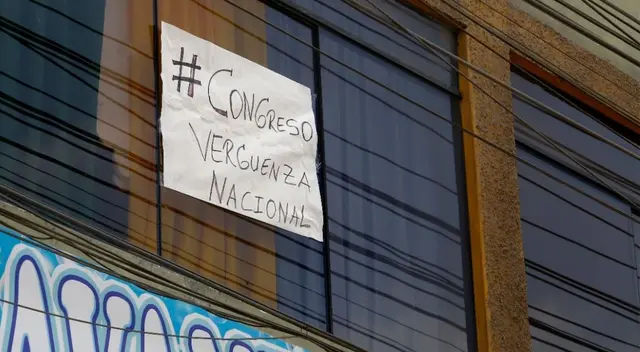 #CONGRESO
VERGUENZA
NACIONAL